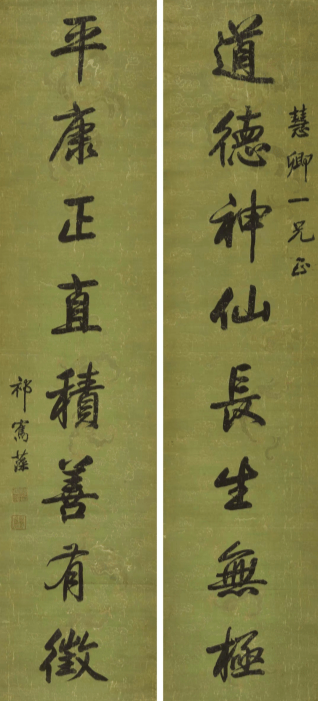 慧卿一兄正
道德神仙長生無極
平康正直積善有徵
祁寯藻